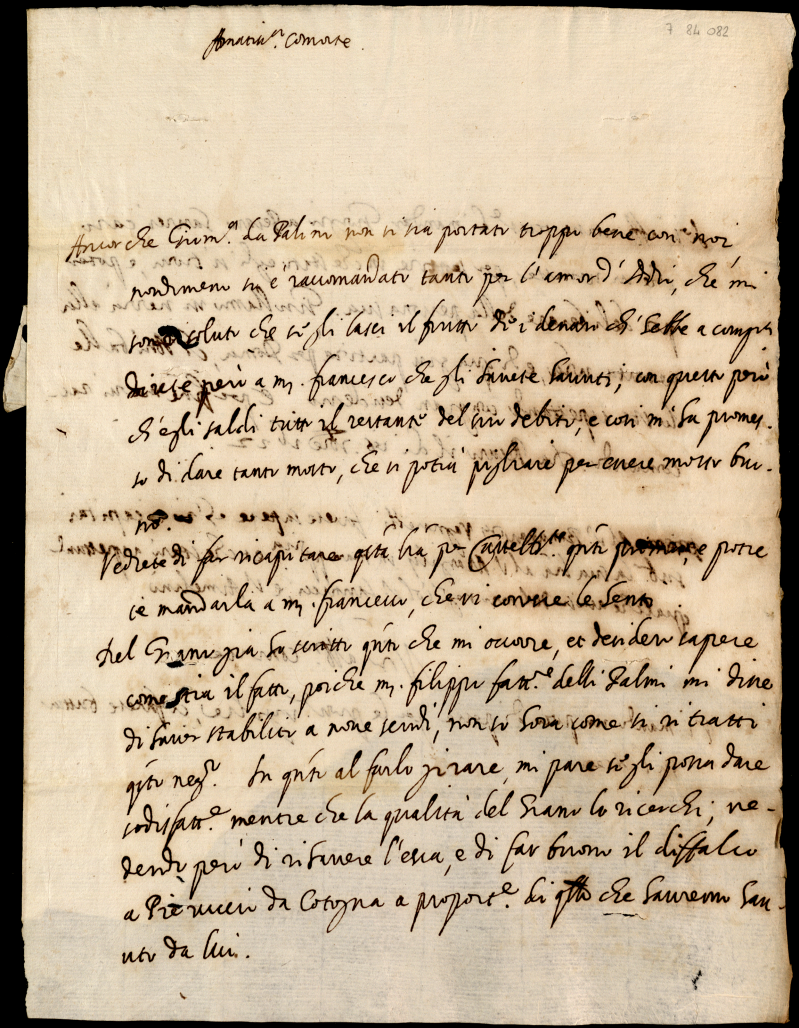 7 84 082
Amatiss.ma Comorte.
Ancor che Giom.o da Palini non si sia portato troppo bene con noi
nondimeno si è raccomandato tanto per l'amor d'Iddio, che mi
son risoluto che se gli lasci il frutto de i denari ch'hebbe a compu
direte però a m. francesco che gli havete havuti, con questo però
ch'egli saldi tutto il restante del suo debito, e così m'ha promes-
so di dare tanto mosto, che si potrà pigliare per essere mosto buo-
no.
Vedrete di far ricapitare q.ta l'ra per q.to e potre
te mandarla a m. francesco, che vi conosce le
Del Grano già ho scritto q.to che mi occorre, et desidero sapere
come stia il fatto, poiche m. filippo fatt.e delli Palmi mi dice
di haver stabilito a nove scudi, non so hora come si ritratti
q.to neg.o In q.to al farlo girare, mi pare se gli possa dare
sodisfatt.e mentre che la qualità del Grano lo ricerchi; ve-
dendo però di rihavere l'esca, e di far buono il diffalco
a Pieruccio da Cotogna a proport.e di q.llo che havremo hau
uto da lui.